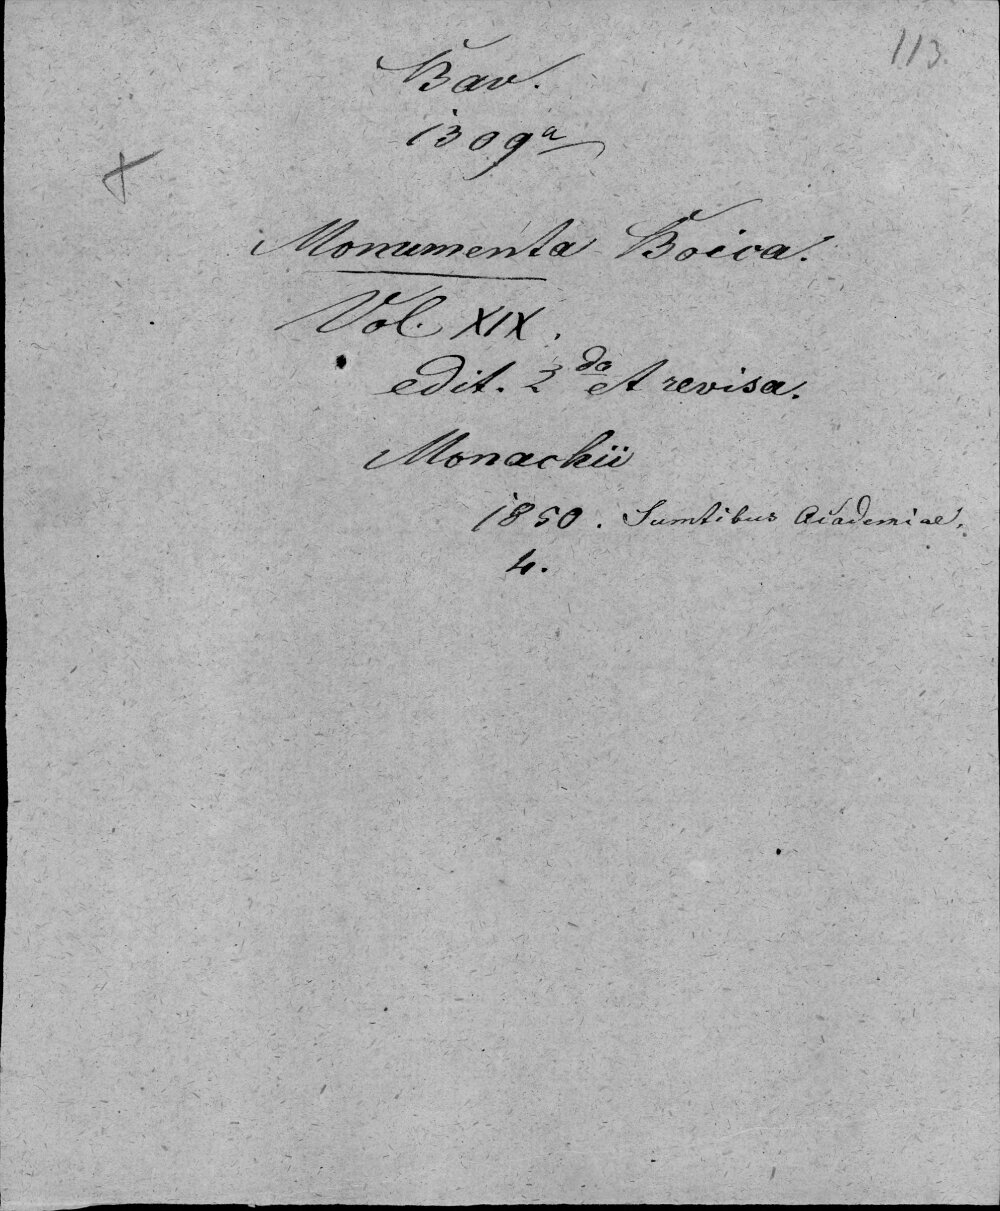 113.
Bav.
1309ª
Monumenta Boica.
Vol. XIX.
edit. 2da et revisa.
Monachii
1850. Sumtibus Academiae.
4.